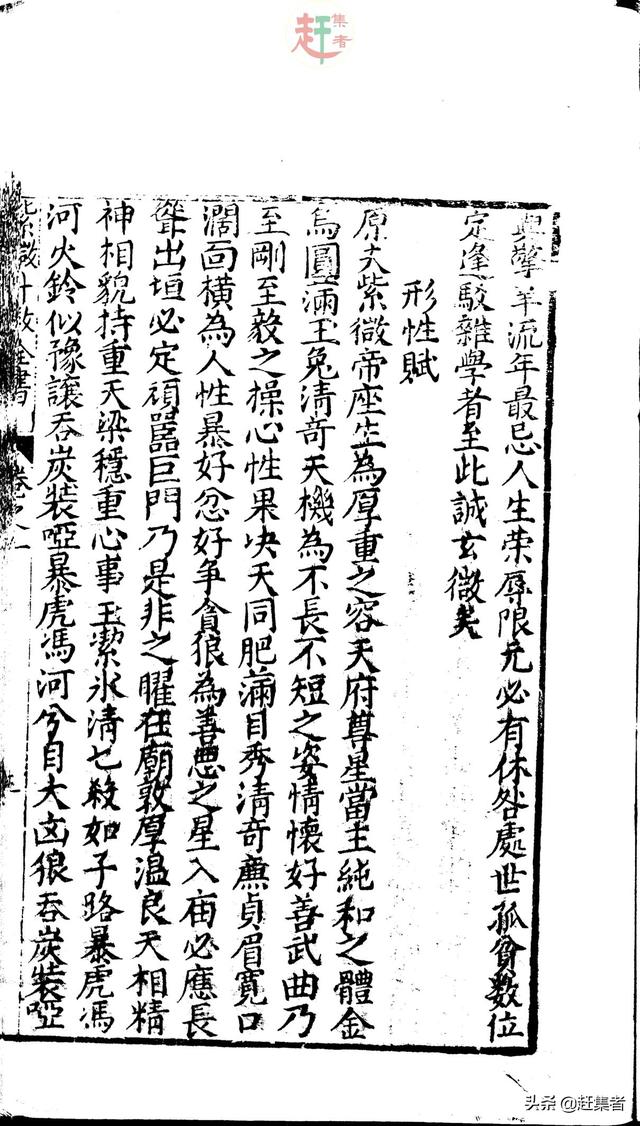 赶集者
與擎羊流年最忌人生荣辱限元必有休咎處世孤貧數位
定逢駁雜學者至此誠玄微矣
形性賦
原夫紫微帝座生為厚重之容天府尊星當主純和之體金
烏圓滿玉兔清奇天機為不長不短之姿情懷好善武曲乃
至剛至毅之操心性果决天同肥滿目秀清奇廉貞眉寬口
濶面横為人性暴好忿好争貪狼為善惡之星入庙必應長
聳出垣必定頑嚚巨門乃是非之曜在廟敦厚温良天相精
神相貌持重天梁穩重心事玉潔冰清七殺如子路暴虎馮
河火鈴似豫讓吞炭裝啞暴虎馮河兮目大凶狼吞炭裝啞
紫微斗数全書 卷之一
头条 @赶集者